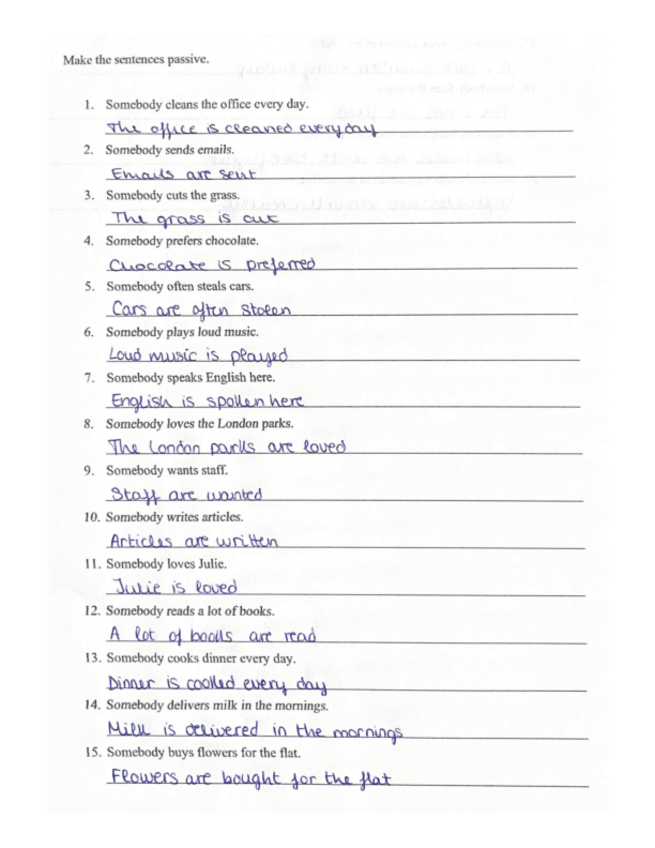 Make the sentences passive.
1. Somebody cleans the office every day.
The office is cleaned everyday
2. Somebody sends emails.
Emails are sent
3. Somebody cuts the grass.
The grass is cut
4. Somebody prefers chocolate.
Chocolate is preferred
5. Somebody often steals cars.
Cars are often stolen
6. Somebody plays loud music.
Loud music is played
7. Somebody speaks English here.
English is spoken here
8. Somebody loves the London parks.
The London parks are loved
9. Somebody wants staff.
Staff are wanted
10. Somebody writes articles.
Articles are written
11. Somebody loves Julie.
Julie is loved
12. Somebody reads a lot of books.
A lot of books are read
13. Somebody cooks dinner every day.
Dinner is cooked every day
14. Somebody delivers milk in the mornings.
Milk is delivered in the mornings
15. Somebody buys flowers for the flat.
Flowers are bought for the flat